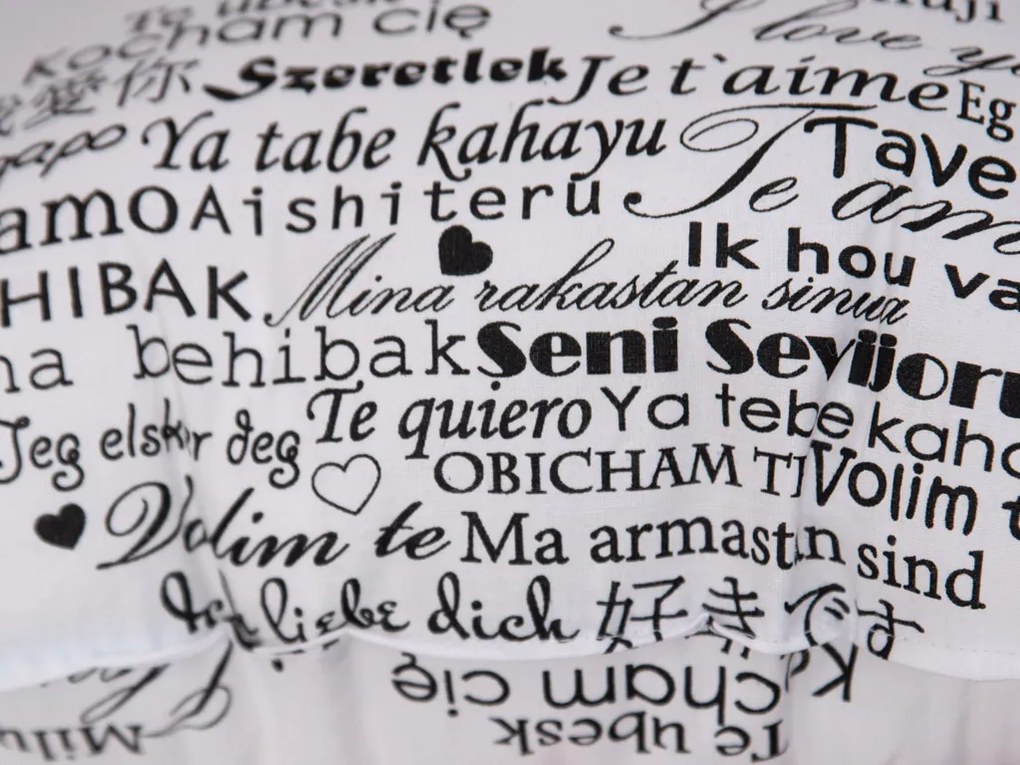 Te ubesk
Kocham cię
I love
我愛你 Szeretlek Je t`aime Eg
Ya tabe kahayu Tave
amo Aishiteru Te am
HIBAK Mina rakastan sinua Ik hou va
na behibak Seni Sevijoru
Jeg elskr deg Te quiero Ya tebe kaha
OBICHAM TI Volim t
Volim te Ma armastan sind
Ich liebe dich 好きです
cham cię
Te ubesk